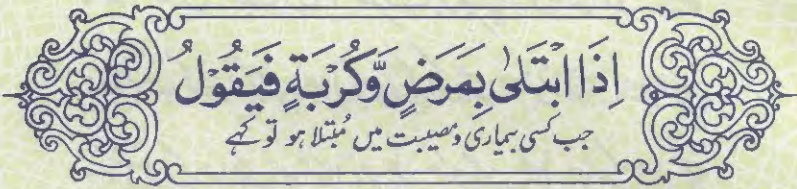 اِذَا ابْتَلٰى بِمَرَضٍ وَّكُرْبَةٍ فَيَقُوْلُ
جب کسی بیماری و مصیبت میں مُبتلا ہو تو کہے